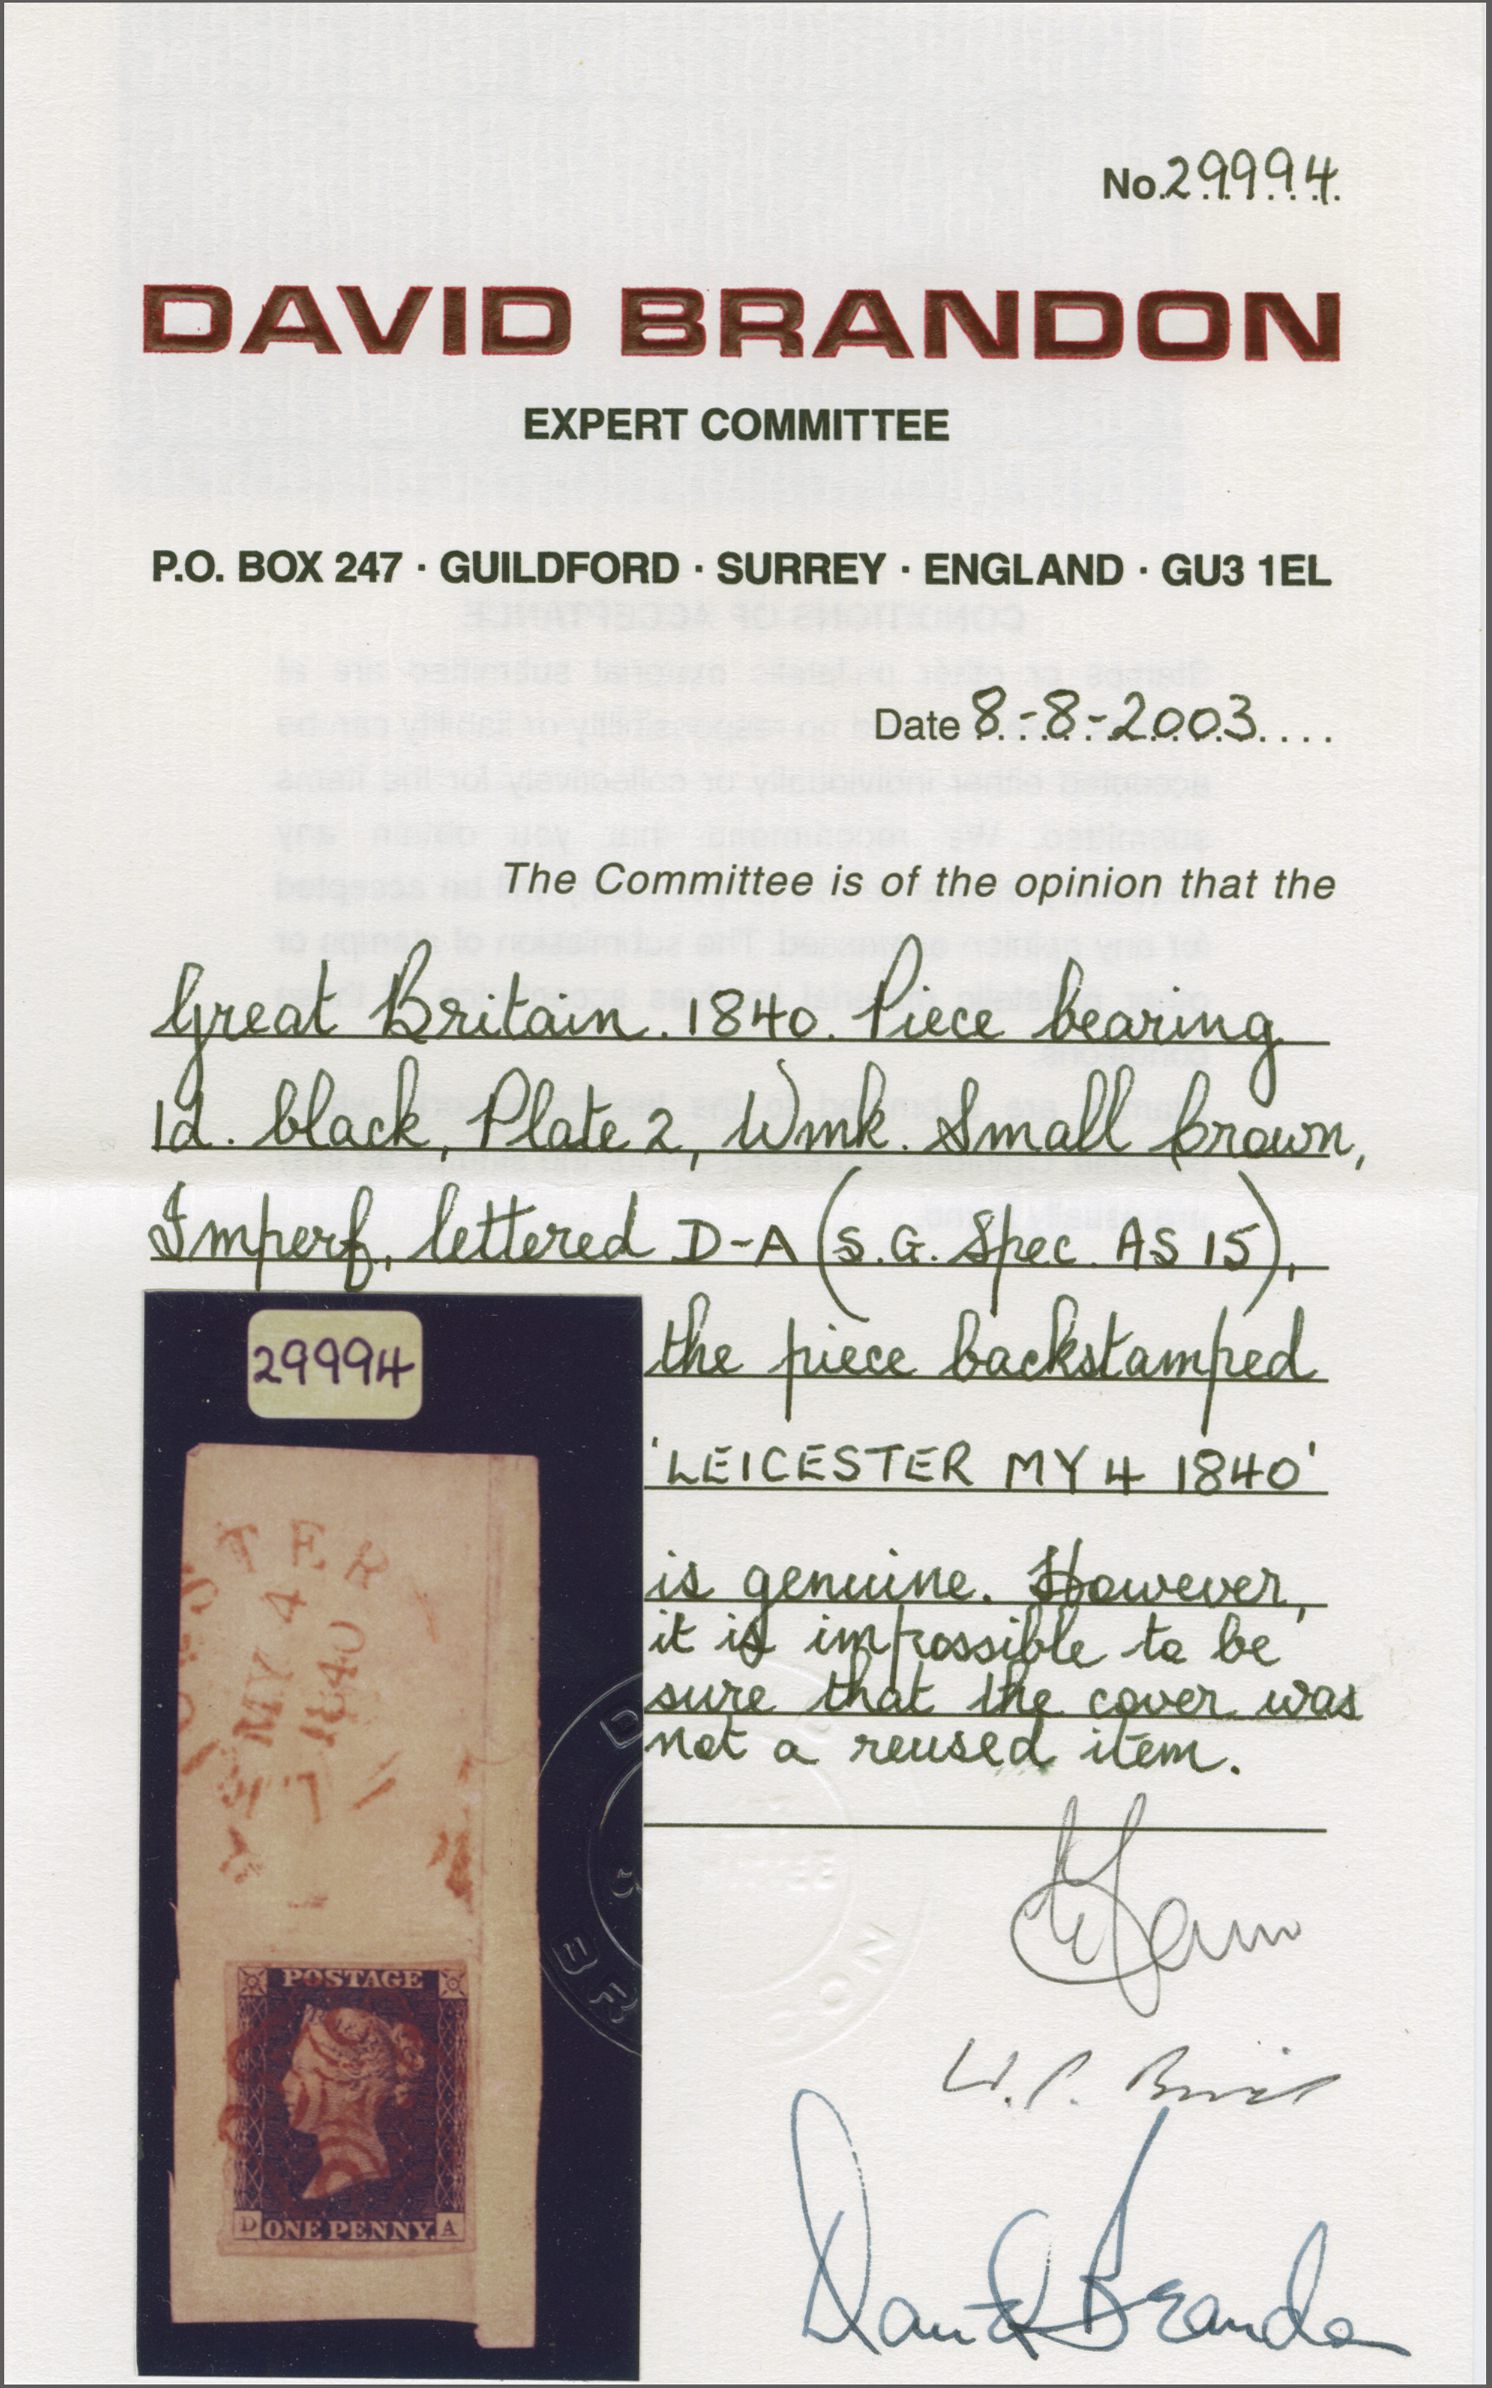 No.29994.
DAVID BRANDON
EXPERT COMMITTEE
P.O. BOX 247 · GUILDFORD · SURREY · ENGLAND · GU3 1EL
Date 8-8-2003....
The Committee is of the opinion that the
Great Britain. 1840. Piece bearing
1d. black, Plate 2, Wmk. Small Crown,
Imperf, lettered D-A (S.G. Spec. AS 15),
the piece backstamped
'LEICESTER MY 4 1840'
is genuine. However,
it is impossible to be
sure that the cover was
not a reused item.
29994
STER
MY 4
1840
POSTAGE
D ONE PENNY. A
David Brandon